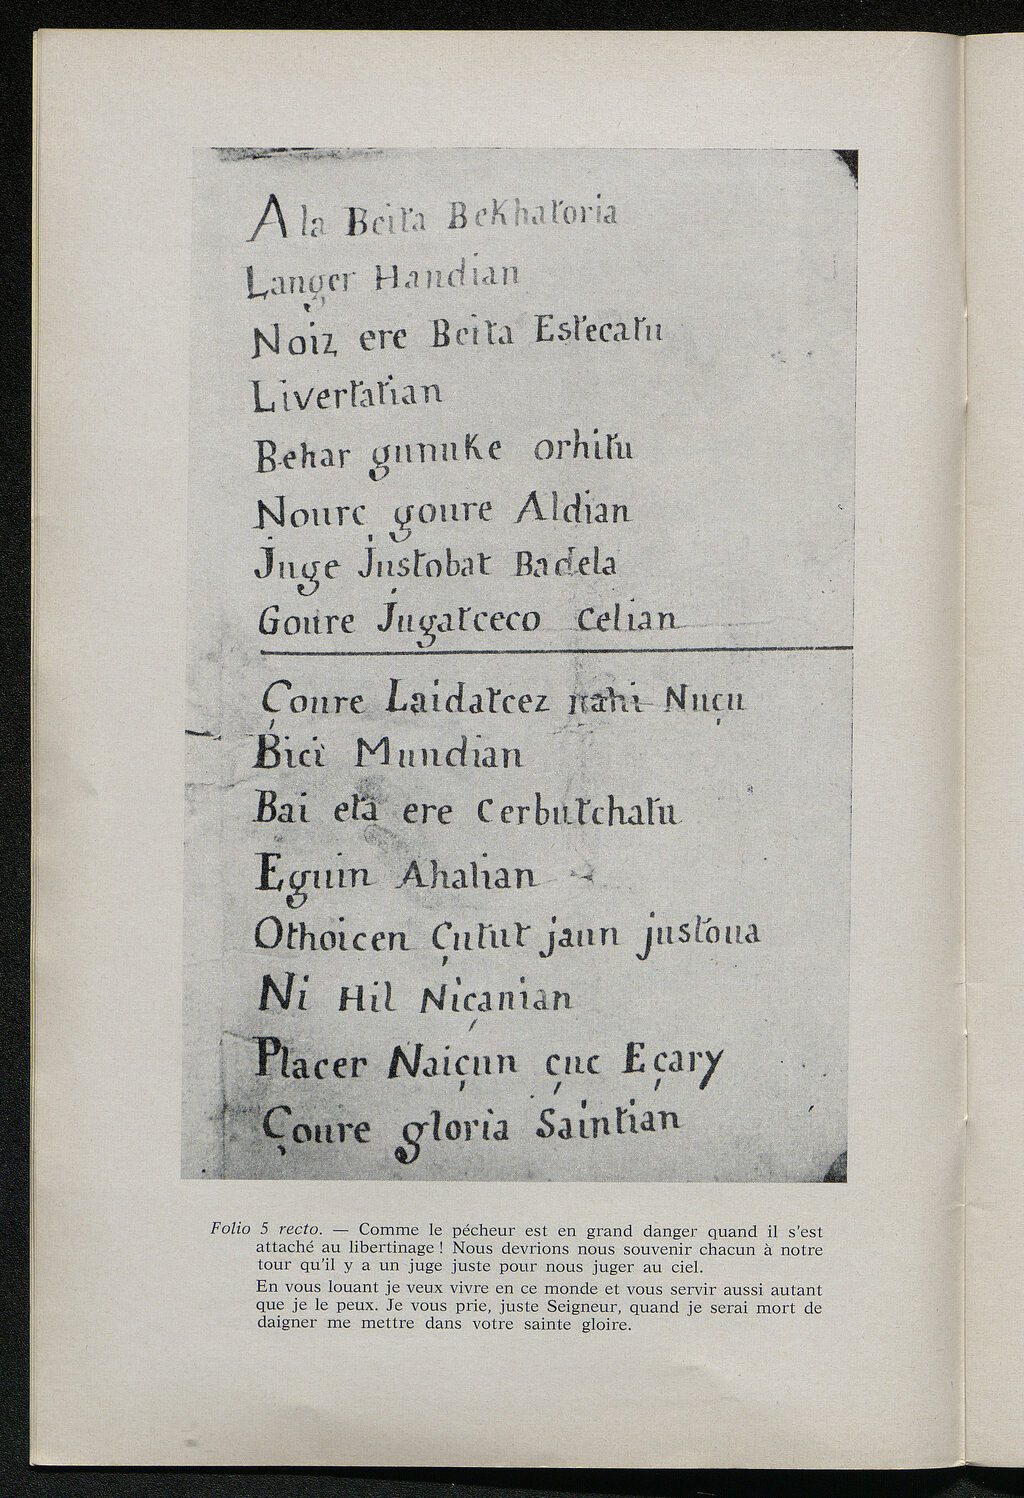 Ala Beita Bekhatoria
Langer Handian
Noiz ere Beita Estecatu
Livertatian
Behar gunuke orhitu
Noure goure Aldian
Juge Justobat Badela
Goure Jugatceco Celian
Çoure Laidatcez nahi Nuçu
Bici Mundian
Bai eta ere Cerbutchatu
Eguin Ahalian
Othoicen Çutut jaun justoua
Ni Hil Niçanian
Placer Naiçun çuc Eçary
Çoure gloria Saintian
Folio 5 recto. — Comme le pécheur est en grand danger quand il s'est
attaché au libertinage ! Nous devrions nous souvenir chacun à notre
tour qu'il y a un juge juste pour nous juger au ciel.
En vous louant je veux vivre en ce monde et vous servir aussi autant
que je le peux. Je vous prie, juste Seigneur, quand je serai mort de
daigner me mettre dans votre sainte gloire.